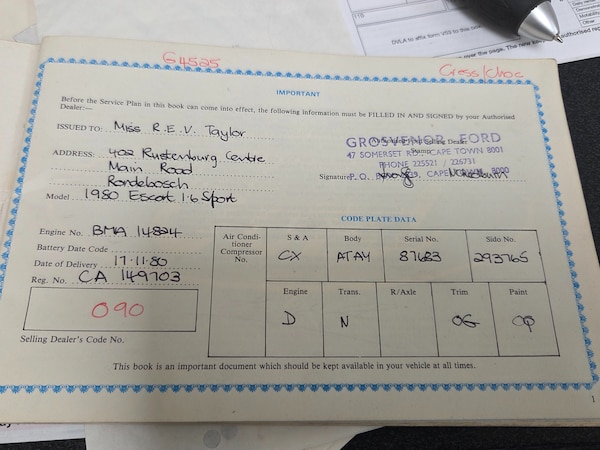 G4525
IMPORTANT
Before the Service Plan in this book can come into effect, the following information must be FILLED IN AND SIGNED by your Authorised
Dealer:—
ISSUED TO: Miss R.E.V. Taylor
ADDRESS: 402 Rustenburg Centre
Main Road
Rondebosch
Model 1980 Escort 1.6 Sport
GROSVENOR FORD
Selling Dealer
Stamp
47 SOMERSET RD., CAPE TOWN 8001
PHONE 225521 / 226731
Signature
P.O. CAPE TOWN 8000
CODE PLATE DATA
Engine No. BMA 14824
Battery Date Code
Date of Delivery 17.11.80
Reg. No. CA 149703
090
Selling Dealer's Code No.
Air Condi-
tioner
Compressor
No.
S & A Body Serial No. Sido No.
CX ATAY 87623 293765
Engine Trans. R/Axle Trim Paint
D N OG
This book is an important document which should be kept available in your vehicle at all times.
1
DVLA to affix form V03 to this
over the page. The new
authorised